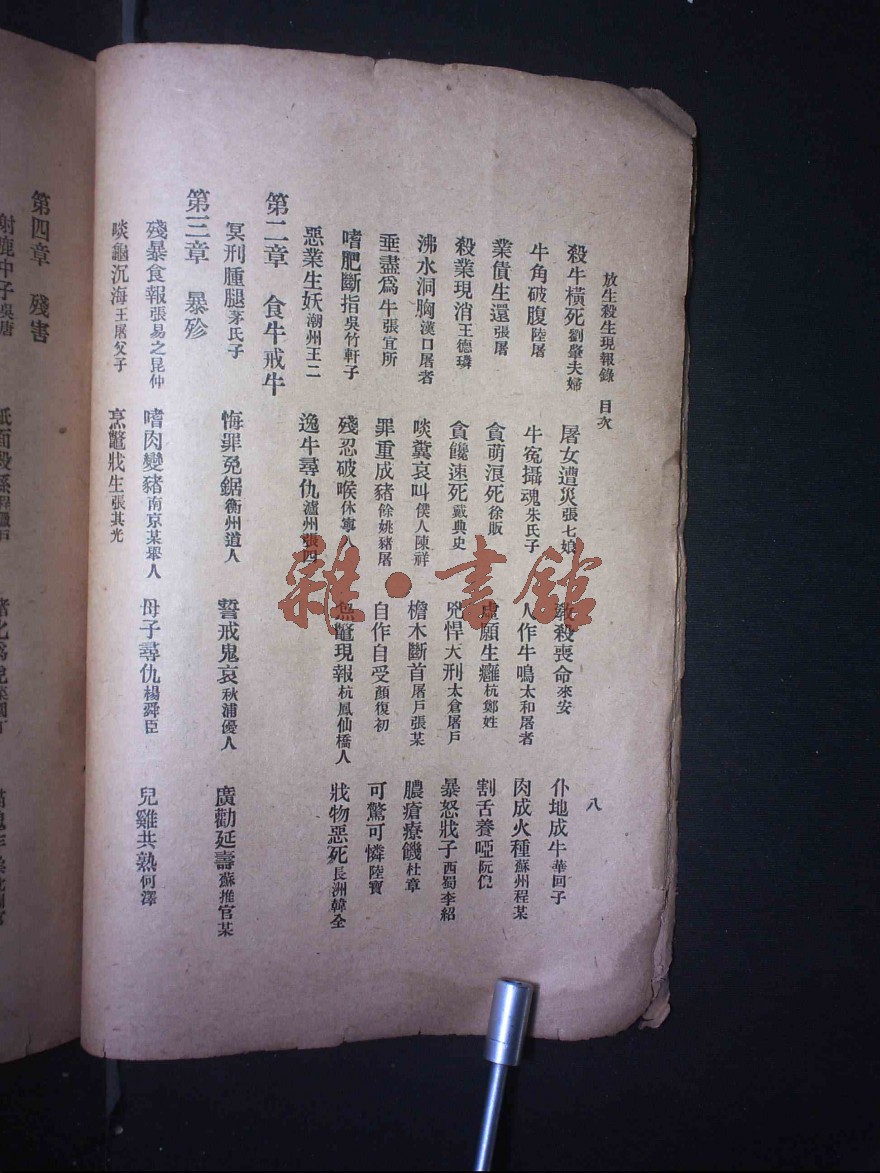 放生殺生現報錄 目次 八
殺牛橫死劉肇夫婦 屠女遭災張七娘 殺喪命來安 仆地成牛華回子
牛角破腹陸屠 牛寃攝魂朱氏子 人作牛鳴太和屠者 肉成火種蘇州程某
業債生還張屠 貪萌浪死徐販 虛願生癰杭鄭姓 割舌養啞阮倪
殺業現消王德璘 貪饞速死戴典史 兇悍大刑太倉屠戶 暴怒戕子西蜀李紹
沸水洞胸漢口屠者 啖糞哀叫僕人陳祥 檐木斷首屠戶張某 膿瘡療饑杜章
垂盡爲牛張宜所 罪重成豬餘姚豬屠 自作自受顏復初 可驚可憐陸寶
嗜肥斷指吳竹軒子 殘忍破喉休寧人 鼈現報杭鳳仙橋人 戕物惡死長洲韓全
惡業生妖潮州王二 逸牛尋仇瀘州張四
第二章 食牛戒牛
冥刑腫腿茅氏子 悔罪免鋸衡州道人 誓戒鬼哀秋浦優人 廣勸延壽蘇推官某
第三章 暴殄
殘暴食報張易之昆仲 嗜肉變豬南京某舉人 母子尋仇楊舜臣 兒雞共熟何澤
啖龜沉海王屠父子 烹鼈戕生張其光
第四章 殘害
射鹿中子吳唐
雜·書館